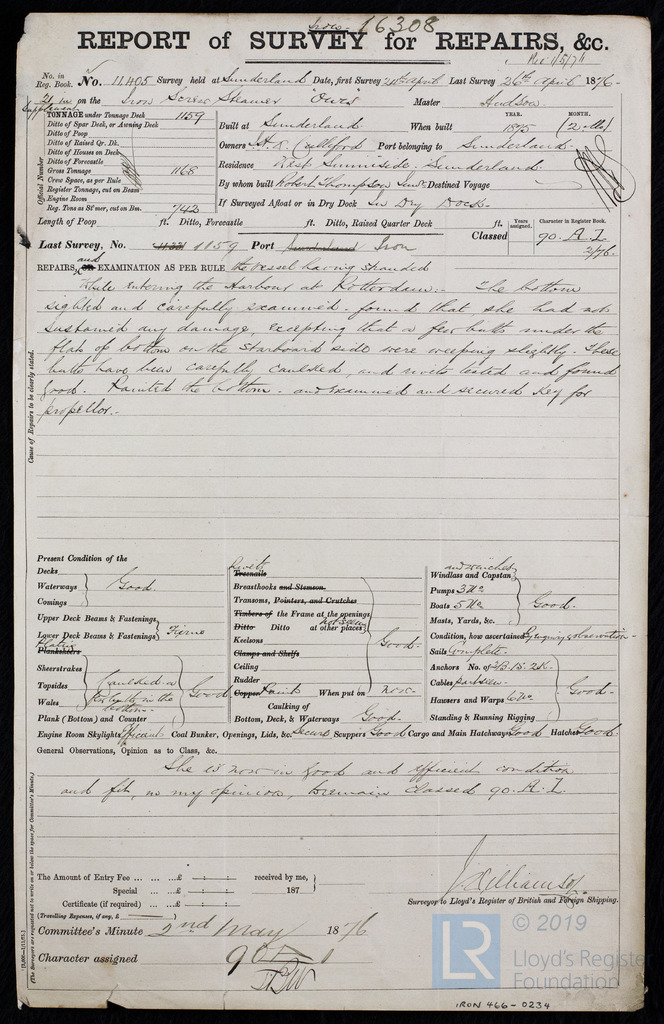 Iron 16308
REPORT of SURVEY for REPAIRS, &c.
No. in Reg. Book. No. 11,405 Survey held at Sunderland Date, first Survey 24th April Last Survey 26th April 1876
21 in Supplement on the Iron Screw Steamer Master Hudson
TONNAGE under Tonnage Deck 1159
Ditto of Spar Deck, or Awning Deck
Ditto of Poop
Ditto of Raised Qr. Dk.
Ditto of Houses on Deck
Ditto of Forecastle
Gross Tonnage 1168
Crew Space, as per Rule
Register Tonnage, cut on Beam
Engine Room
Reg. Tons as St'mer, cut on Bm. 742
Official Number
YEAR. MONTH.
Built at Sunderland When built 1875 (2 mo)
Owners Port belonging to Sunderland
Residence West Sunniside Sunderland
By whom built Robert Thompson Junr. Destined Voyage
If Surveyed Afloat or in Dry Dock In Dry Dock
Length of Poop ft. Ditto, Forecastle ft. Ditto, Raised Quarter Deck ft.
Classed Years assigned. Character in Register Book. 90. A. I. 2/76
Last Survey, No. 1159 Port Sunderland Iron
REPAIRS, and or EXAMINATION AS PER RULE the vessel having stranded
while entering the Harbour at Rotterdam. The bottom
sighted and carefully examined. found that, she had not
sustained any damage, excepting that a few butts under the
flat of bottom on the starboard side were weeping slightly. These
butts have been carefully caulked, and rivets tested and found
good. Painted the bottom. and examined and secured key for
propellor.
Cause of Repairs to be clearly stated.
Present Condition of the
Decks
Waterways Good.
Comings
Upper Deck Beams & Fastenings
Lower Deck Beams & Fastenings
Plating Planksheers
Sheerstrakes
Topsides Caulked a
Wales few butts in the bottom Good
Plank (Bottom) and Counter
Rivets Treenails
Breasthooks and Stemson
Transoms, Pointers, and Crutches
Timbers of the Frame at the openings
Ditto Ditto at other places not seen
Keelsons Good.
Clamps and Shelfs
Ceiling
Rudder
Copper Paint When put on now.
Caulking of
Bottom, Deck, & Waterways Good.
and winches
Windlass and Capstan
Pumps 3 No.
Boats 5 No. Good.
Masts, Yards, &c.
Condition, how ascertained By enquiry & observation
Sails Complete.
Anchors No. of 3B. 1S. 2K.
Cables part seen Good.
Hawsers and Warps
Standing & Running Rigging
Engine Room Skylights Efficient Coal Bunker, Openings, Lids, &c. Secure Scuppers Good Cargo and Main Hatchways Good Hatches Good.
General Observations, Opinion as to Class, &c.
She is now in good and efficient condition
and fit, in my opinion, to remain classed 90. A. I.
(The Surveyors are requested not to write on or below the space for Committee's Minute.)
The Amount of Entry Fee ... ... ... £ : : received by me,
Special ... ... £ : : 187
Certificate (if required) ... £ : :
(Travelling Expenses, if any, £ )
J. Williamson
Surveyor to Lloyd's Register of British and Foreign Shipping.
Committee's Minute 2nd May 1876
Character assigned 90 A 1
LR © 2019
Lloyd's Register
Foundation
IRON 466-0234